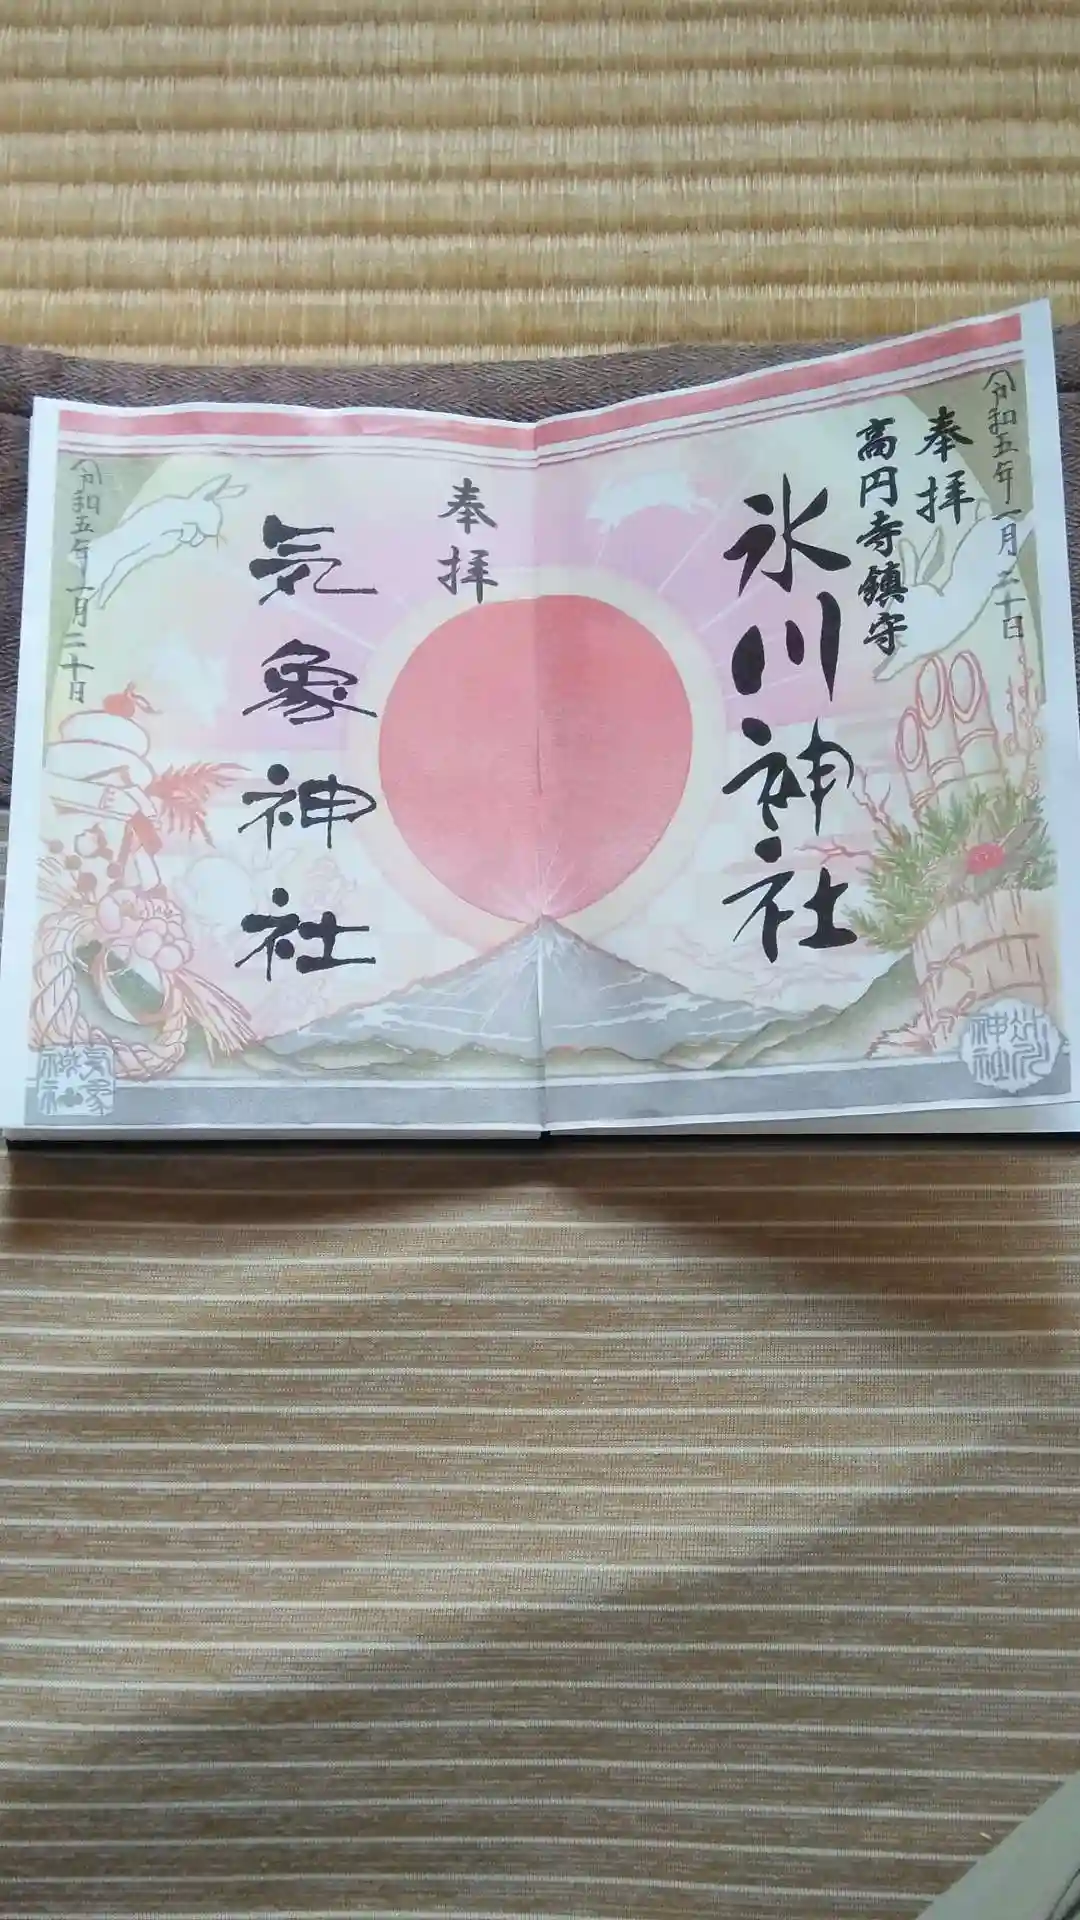 令和五年一月二十日
奉拝
高円寺鎮守
氷川神社
氷川神社
奉拝
気象神社
令和五年一月二十日
気象神社